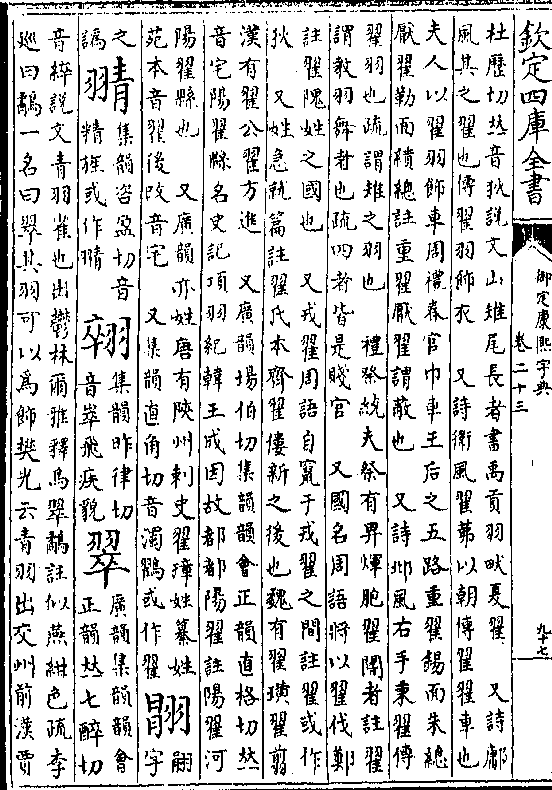 欽定四庫全書
御定康熙字典
卷二十三
九十七
杜歷切𠀤音狄說文山雉尾長者書禹貢羽畎夏翟　又詩鄘
風其之翟也傳翟羽飾衣　又詩衛風翟茀以朝傳翟翟車也
夫人以翟羽飾車周禮春官巾車王后之五路重翟錫面朱總
厭翟勒面繢總註重翟厭翟謂蔽也　又詩邶風右手秉翟傳
翟羽也疏謂雉之羽也　禮祭統夫祭有畀煇胞翟閽者註翟
謂敎羽舞者也疏四者皆是賤官　又國名周語將以翟伐鄭
註翟隗姓之國也　又戎翟周語自竄于戎翟之間註翟或作
狄　又姓急就篇註翟氏本齊翟僂新之後也魏有翟璜翟翦
漢有翟公翟方進　又廣韻場伯切集韻韻會正韻直格切𠀤
音宅陽翟縣名史記項羽紀韓王成因故都都陽翟註陽翟河
陽翟縣也　又廣韻亦姓唐有陝州刺史翟璋姓纂姓
苑本音翟後改音宅　又集韻直角切音濁鸐或作翟　䎃字
之譌　䎴集韻咨盈切音精旌或作䎴　䎜集韻昨律切音崒飛疾貌　翠廣韻集韻韻會正韻𠀤七醉切
音綷說文青羽雀也出鬱林爾雅釋鳥翠鷸註似燕紺色疏李
巡曰鷸一名曰翠其羽可以爲飾樊光云青羽出交州前漢賈